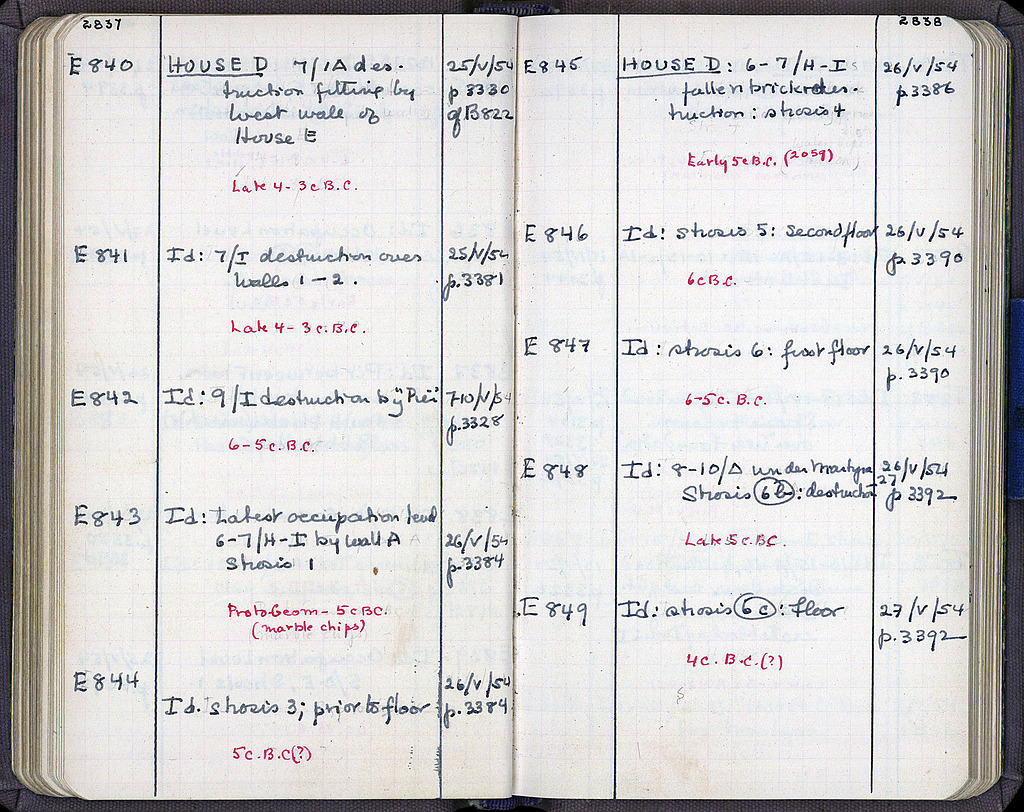 2837
E 840 HOUSE D 7/1A des- 25/V/54
truction fitting by p 3330
west wall of of B822
House E
Late 4-3c B.C.
E 841 Id: 7/I destruction over 25/V/54
walls 1-2. p.3381
Late 4-3c.B.C.
E 842 Id: 9/I destruction by 7-10/V/54
p.3328
6-5c.B.C.
E 843 Id: Latest occupation level
6-7/H-I by wall A 26/V/54
Strosis 1 p.3384
ProtoGeom-5cBC.
(marble chips)
E 844 26/V/54
Id. strosis 3; prior to floor p.3384
5c.B.C(?)
2838
E 845 HOUSE D: 6-7/H-I 26/V/54
fallen brick des- p.3386
truction: strosis 4
Early 5c B.C. (2059)
E 846 Id: strosis 5: second floor 26/V/54
p.3390
6c B.C.
E 847 Id: strosis 6: first floor 26/V/54
p. 3390
6-5c. B.C.
E 848 Id: 8-10/Δ under Martyra 26/V/54
27
Strosis 6b: destruction p 3392
Late 5c. BC.
E 849 Id: strosis 6c: Floor 27/V/54
p.3392
4c. B.C.(?)